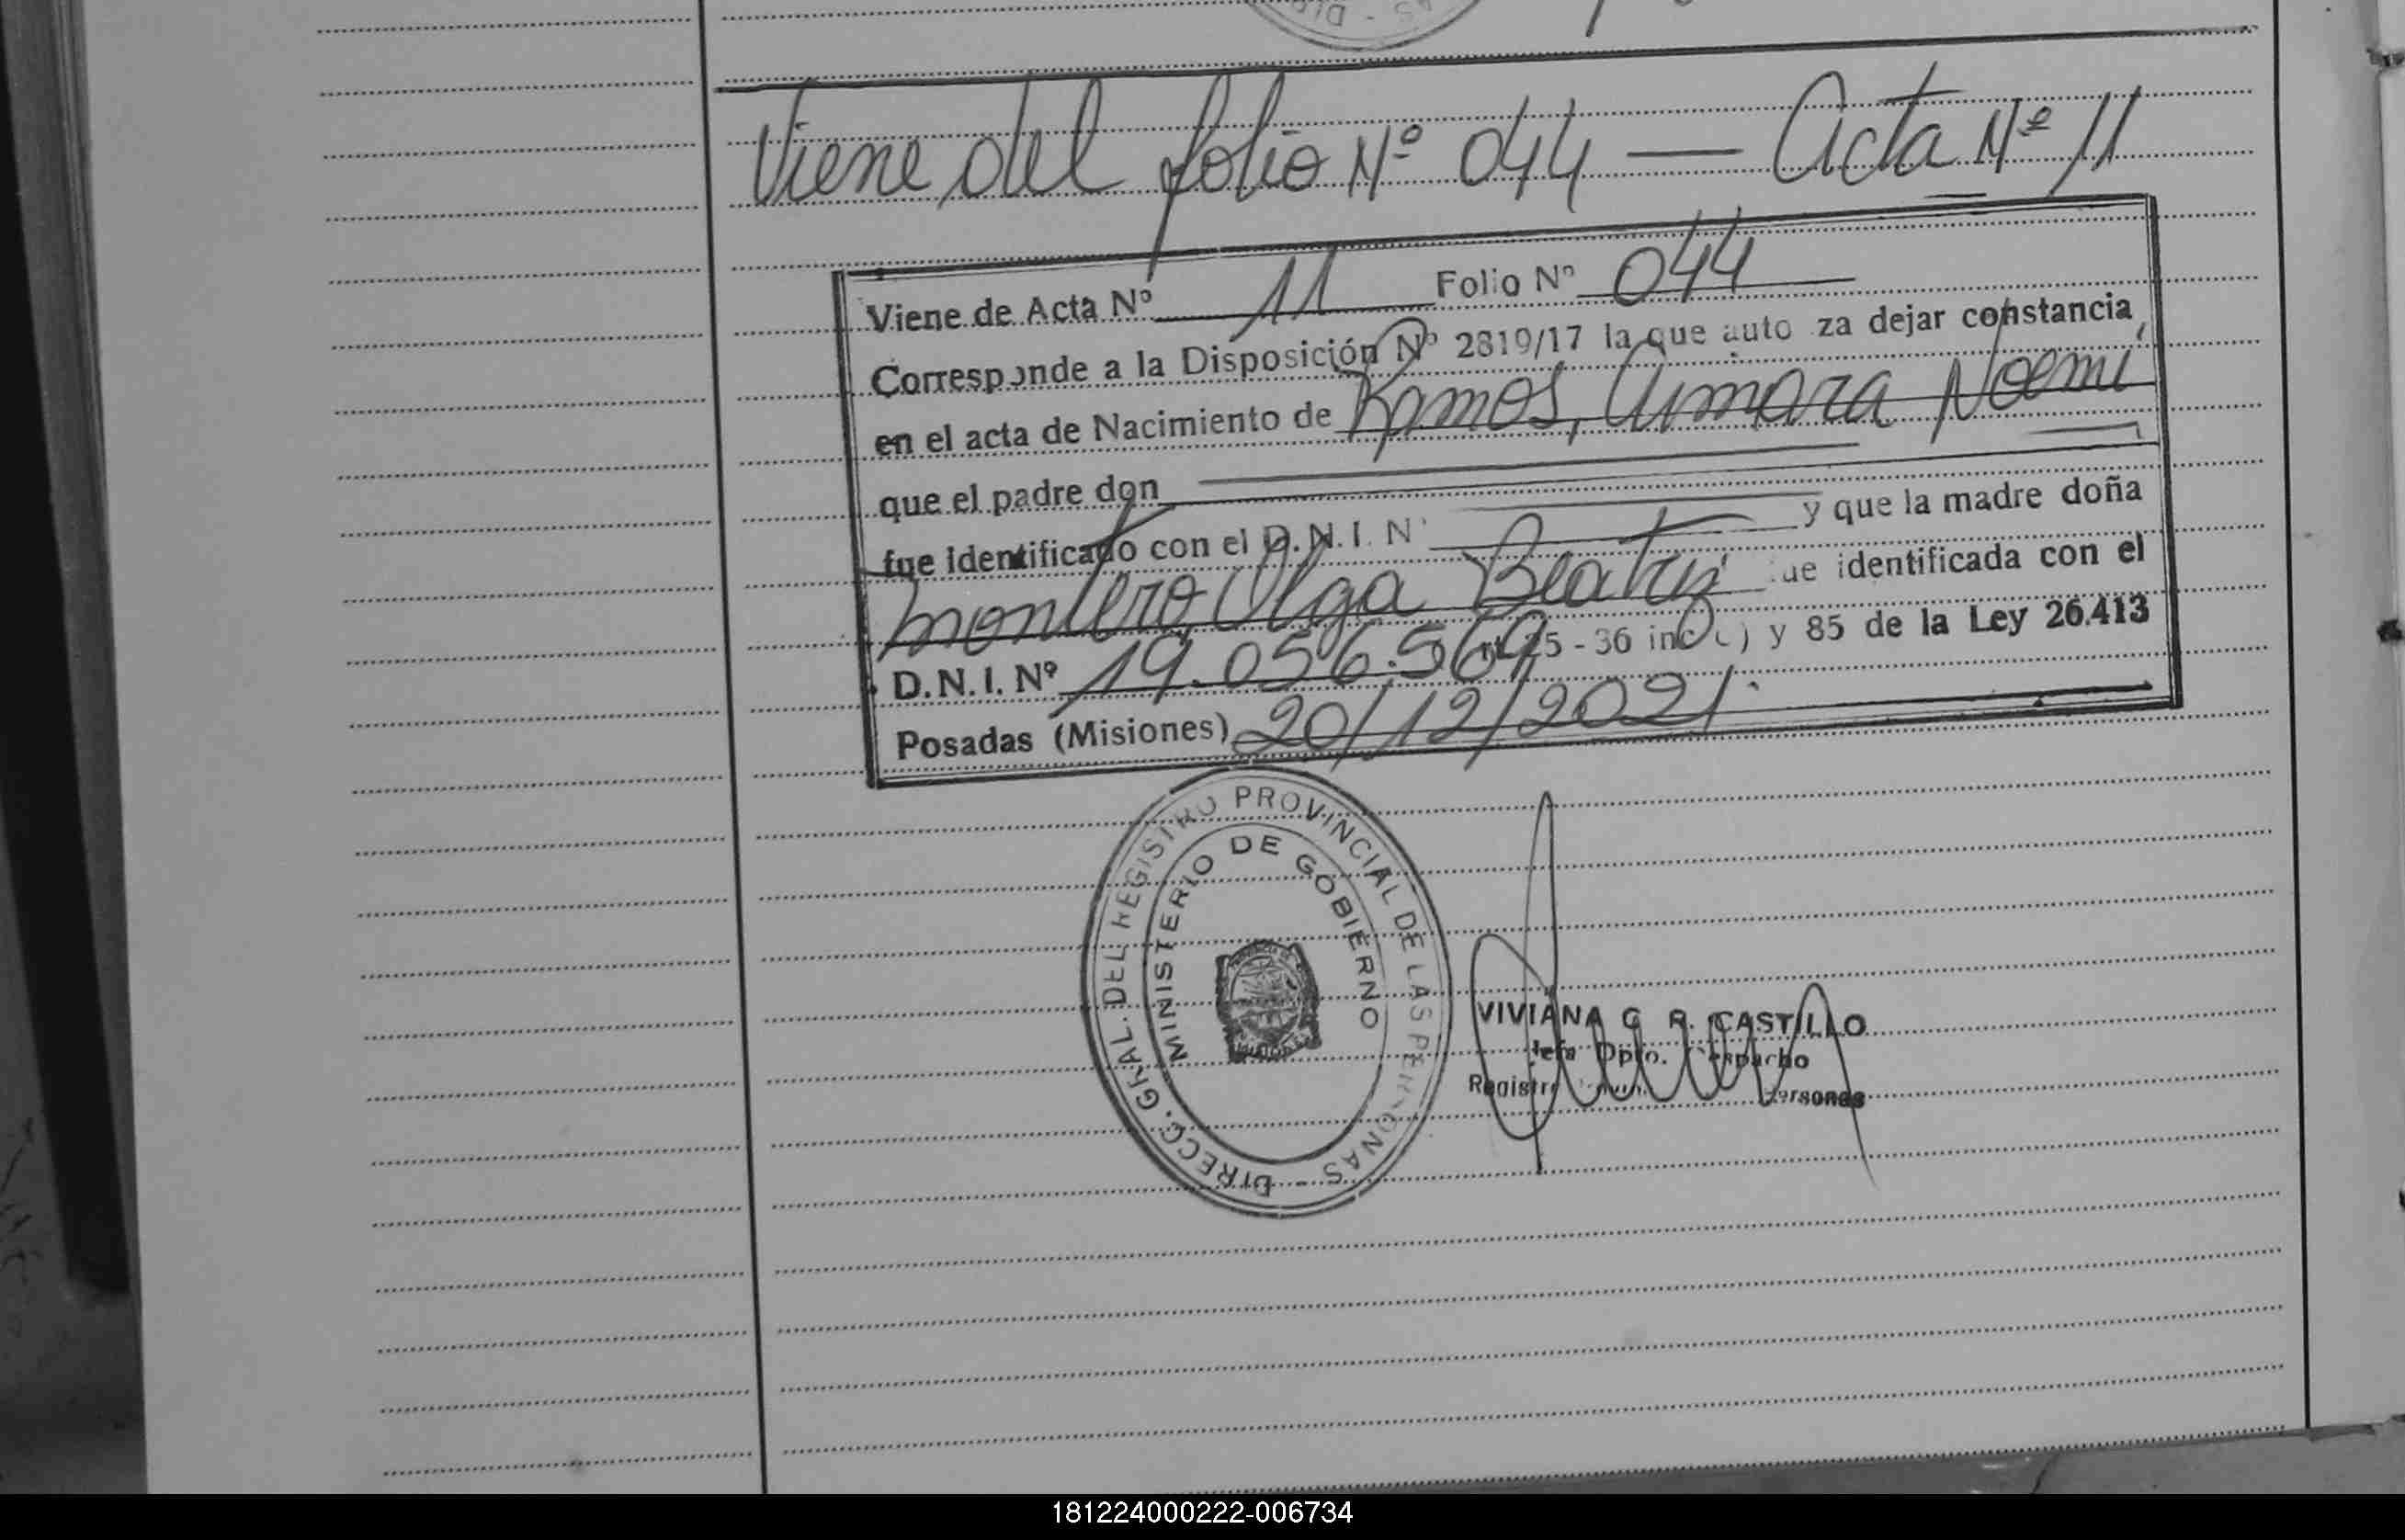 Viene del folio Nº 044 — Acta Nº 11
Viene de Acta Nº 11 Folio Nº 044
Corresponde a la Disposición Nº 2819/17 la que auto za dejar constancia
en el acta de Nacimiento de Ramos, Aimara Noemí
que el padre don
fue identificado con el D.N.I. N y que la madre doña
Montero, Olga Beatriz ue identificada con el
D.N.I. Nº 19.056.569 25 - 36 inc c) y 85 de la Ley 26.413
Posadas (Misiones) 20/12/2021.
DIRECC. GRAL. DEL REGISTRO PROVINCIAL DE LAS PERSONAS -
MINISTERIO DE GOBIERNO
VIVIANA C. R. CASTILLO
Jefa Dpto. Despacho
Registro Personas
181224000222-006734